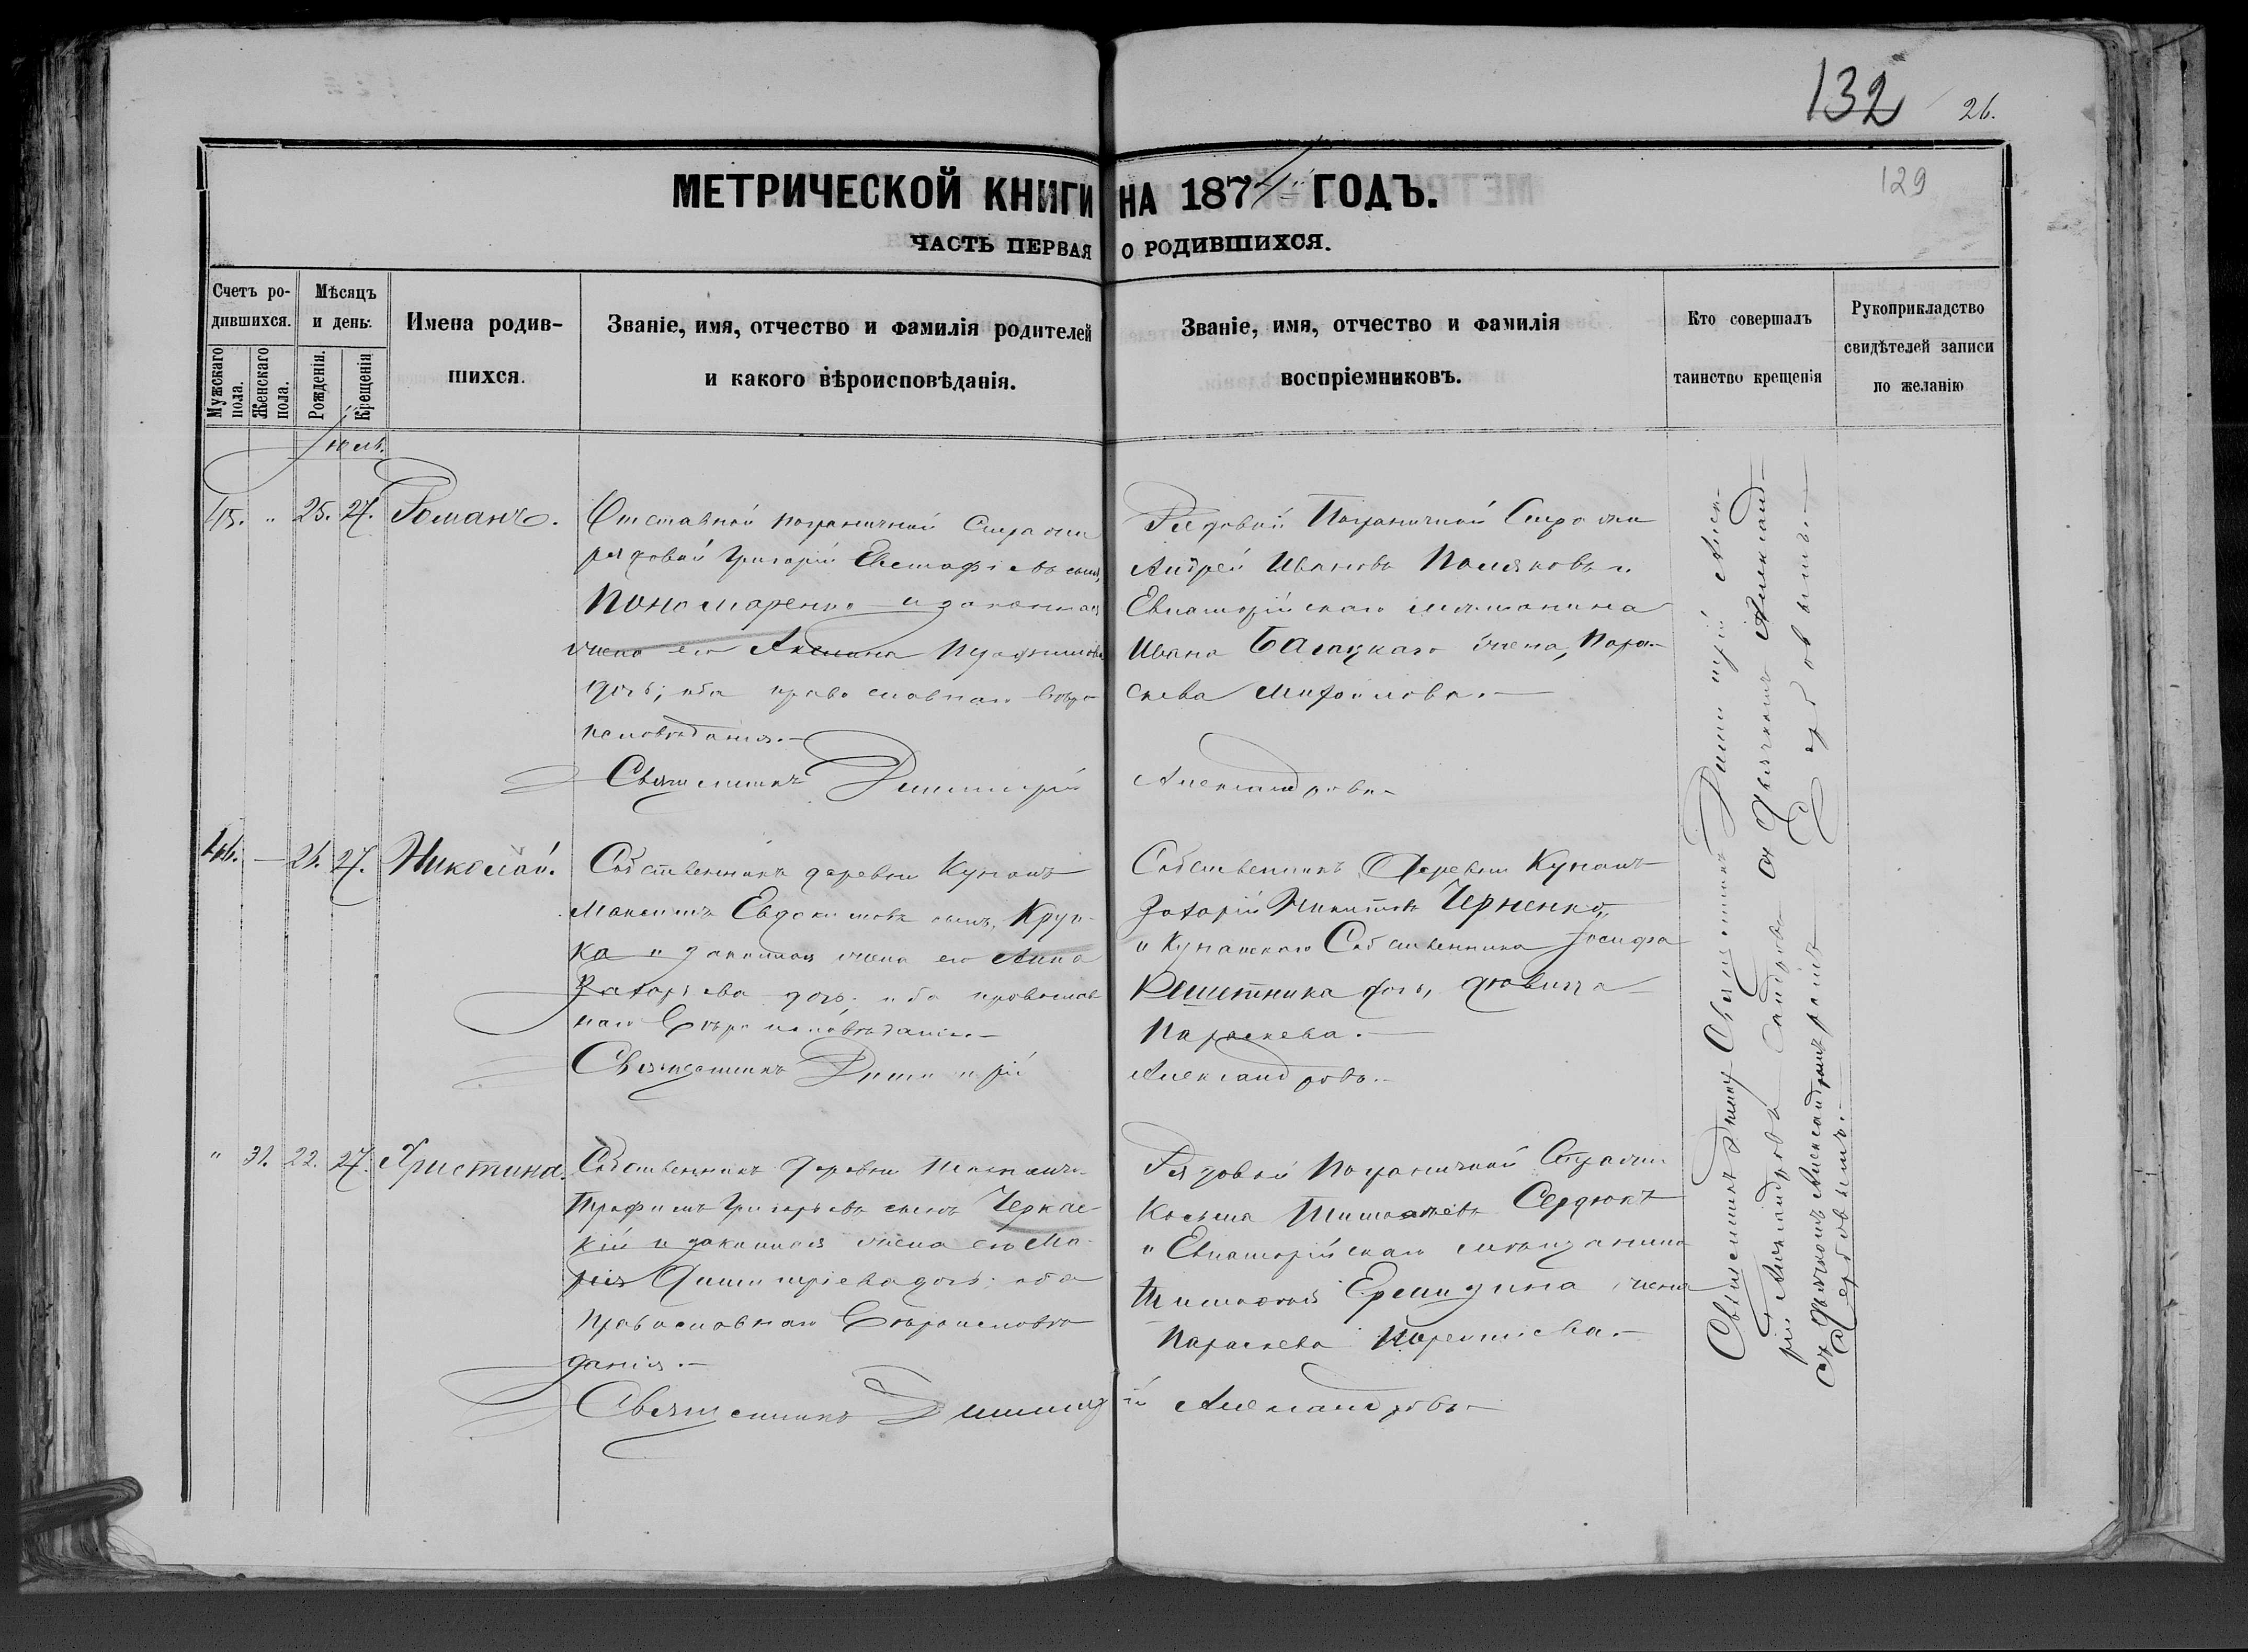 132
26.
129
МЕТРИЧЕСКОЙ КНИГИ НА 1874 ГОДЪ.
ЧАСТЬ ПЕРВАЯ О РОДИВШИХСЯ.
Счетъ ро-
дившихся.
Мужскаго пола.
Женскаго пола.
Мѣсяцъ
и день:
Рожденія.
Крещенія
Имена родив-
шихся.
Званіе, имя, отчество и фамилія родителей
и какого вѣроисповѣданія.
Званіе, имя, отчество и фамилія
воспріемниковъ.
Кто совершалъ
таинство крещенія
Рукоприкладство
свидѣтелей записи
по желанію
Іюль.
45. " 25. 27. Романъ.
Отставной пограничной Стражи
рядовой Григорій Евстафіевъ сынъ,
Пономаренко и законная
жена его Аксинья
дочь; оба православнаго вѣро
исповѣданія.—
Священникъ Димитрій
Рядовой Пограничной Стражи
Андрей Ивановъ Поляковъ и
Евпаторійскаго мѣщанина
Ивана жена, Пара-
скева Михайлова.—
Александровъ
46. — 26. 27. Николай.
Собственникъ деревни Кунанъ
Максимъ Евдокимовъ сынъ, Круп-
ка и законная жена его Анна
Захарьева дочь. оба православ
наго вѣроисповѣданія.—
Священникъ Димитрій
Собственникъ Деревни Кунанъ
Захарій Никитовъ Черненко,
и Кунанскаго Собственника Іосифа
Решетника дочь, дѣвица
Параскева.—
Александровъ.—
" 31. 22. 27. Христина.
Собственникъ Деревни
Трофимъ Григорьевъ сынъ Черкас-
кій и законная жена его Ма-
рія Димитріева дочь; оба
Православнаго Вѣроисповѣ
данія.—
Священникъ Димитрій
Рядовой Пограничной Стражи
Косьма Тимофѣевъ Сердюкъ
и Евпаторійскаго мѣщанина
Тимофея жена
Параскева
Александровъ—
Священникъ Димитрій Алек-
сандровъ съ Дьячкомъ Александ-
Сербовымъ.—
Священникъ Димит
рій Александровъ
съ Дьячкомъ Александромъ
Сербовымъ.—